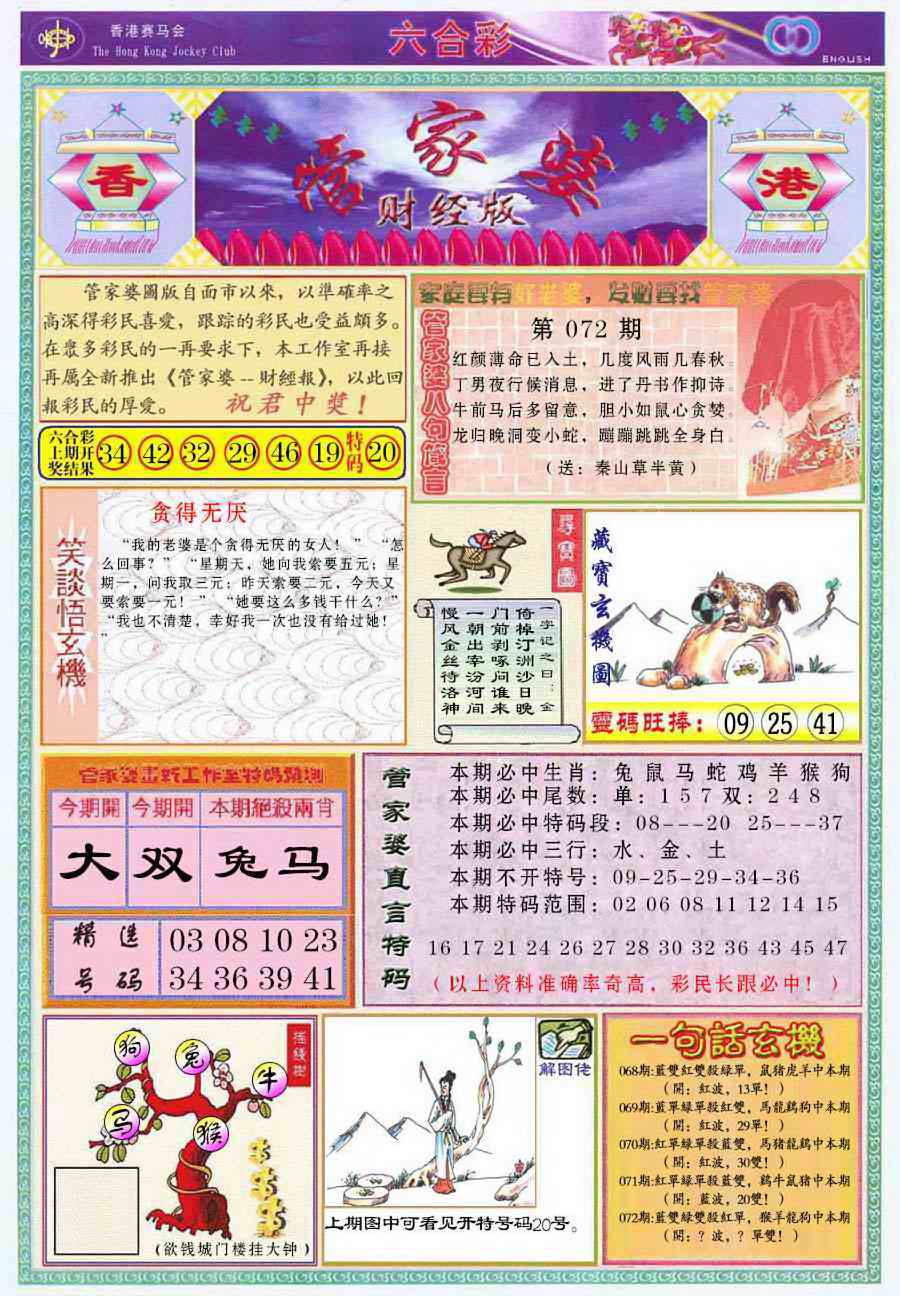 香港赛马会
The Hong Kong Jockey Club
六合彩
ENGLISH
香
管家婆
财经版
港
管家婆圖版自面市以來，以準確率之
高深得彩民喜愛，跟踪的彩民也受益頗多。
在眾多彩民的一再要求下，本工作室再接
再属全新推出《管家婆--財經報》，以此回
報彩民的厚爱。 祝君中獎！
六合彩
上期开
奖结果
34 42 32 29 46 19 特码 20
家庭要有好老婆，发财要找管家婆
管家婆八句箴言
第 072 期
红颜薄命已入土，几度风雨几春秋。
丁男夜行候消息，进了丹书作抑诗。
牛前马后多留意，胆小如鼠心贪婪。
龙归晚洞变小蛇，蹦蹦跳跳全身白。
（送：秦山草半黄）
笑談悟玄機
贪得无厌
“我的老婆是个贪得无厌的女人！”“怎
么回事？”“星期天，她向我索要五元；星
期一，问我取三元；昨天索要二元，今天又
要索要一元！”“她要这么多钱干什么？”
“我也不清楚，幸好我一次也没有给过她！
”
尋寶圖
一字记之曰：金
倚棹汀洲沙日晚
门前剥啄问谁来
一朝出宰汾河间
慢风金丝待洛神
藏寳玄機圖
靈碼旺捧： 09 25 41
管家婆畫新工作室特碼預測
今期開 今期開 本期絕殺兩肖
大 双 兔马
精选号码
03 08 10 23
34 36 39 41
管家婆直言特码
本期必中生肖：兔 鼠 马 蛇 鸡 羊 猴 狗
本期必中尾数：单：1 5 7 双：2 4 8
本期必中特码段：08---20 25---37
本期必中三行：水、金、土
本期不开特号：09-25-29-34-36
本期特码范围：02 06 08 11 12 14 15
16 17 21 24 26 27 28 30 32 36 43 45 47
（以上资料准确率奇高，彩民长跟必中！）
摇錢樹
狗
兔
牛
马
猴
（欲钱城门楼挂大钟）
解图佬
上期图中可看见开特号码20号。
一句話玄機
068期:藍雙紅雙殺綠單，鼠猪虎羊中本期
（開：紅波，13單！）
069期:藍單綠單殺紅雙，馬龍鷄狗中本期
（開：紅波，29單！）
070期:紅單綠單殺藍雙，馬猪龍鷄中本期
（開：紅波，30雙！）
071期:紅單綠單殺藍雙，鷄牛鼠猪中本期
（開：藍波，20雙！）
072期:藍雙綠雙殺紅單，猴羊龍狗中本期
（開：？波，？單雙！）